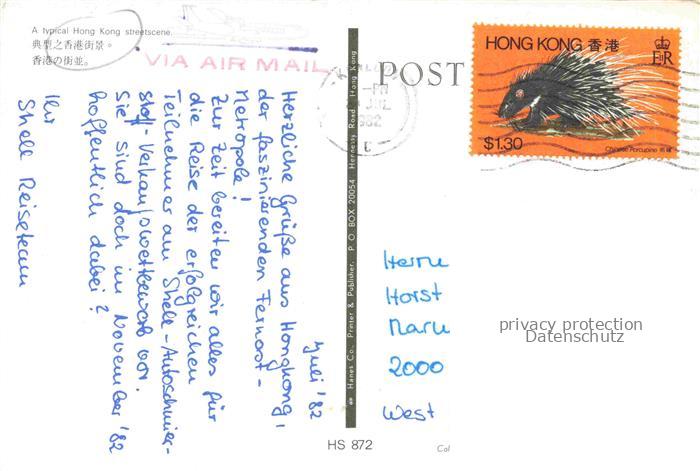 A typical Hong Kong streetscene.
典型之香港街景。
香港の街並。
VIA AIR MAIL
POST
HONG KONG 香港
EIIR
$1.30
Chinese Porcupine 箭豬
PM
JUL
1982
Juli '82
Herzliche Grüße aus Hongkong,
der faszinierenden Fernost-
Metropole!
Zur Zeit bereiten wir alles für
die Reise der erfolgreichen
Teilnehmer am Shell-Autoschmier-
stoff-Verkaufswettbewerb vor.
Sie sind doch im November '82
hoffentlich dabei?
Ihr
Shell Reiseteam
Hanes Co., Printer & Publisher, P. O. BOX 20054, Hennessy Road, Hong Kong
Herrn
Horst
Maru
2000
West
privacy protection
Datenschutz
HS 872
Col